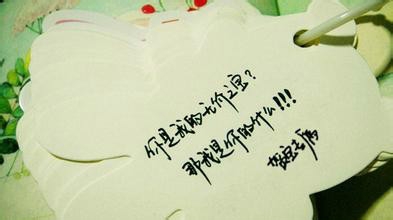 你是我的无价之宝?
那我是你的什么!!!